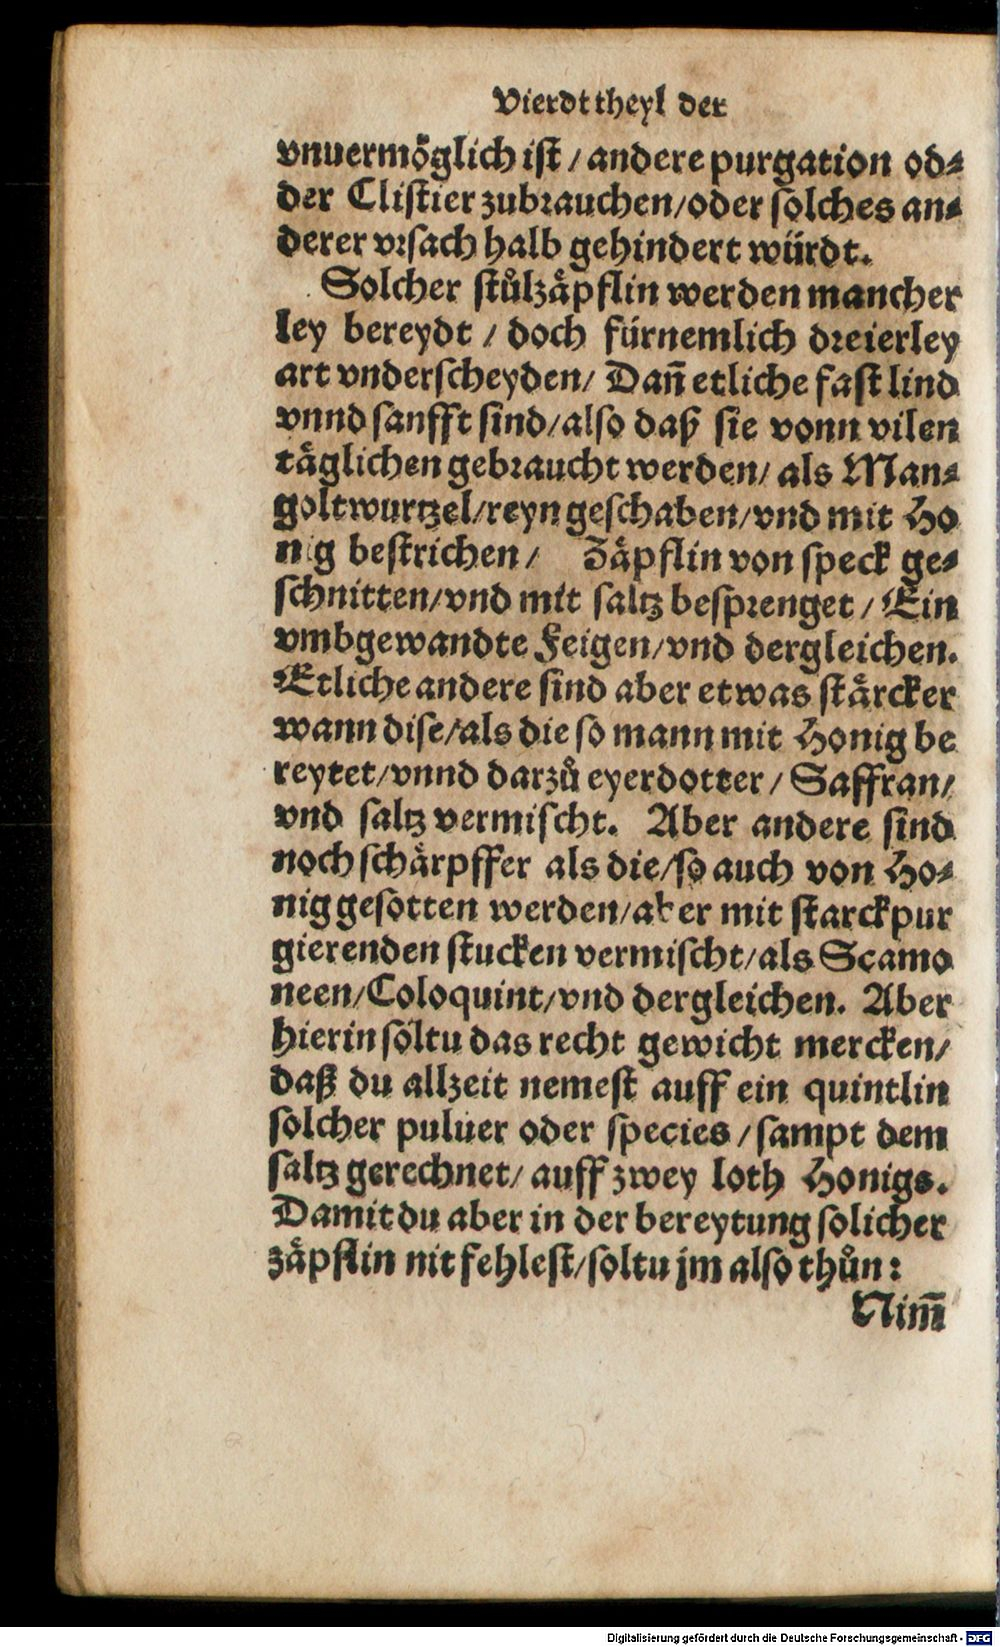 Vierdt theyl der
vnuermöglich ist / andere purgation od⸗
der Clistier zubrauchen/oder solches an⸗
derer vrsach halb gehindert würdt.
Solcher stůlzäpflin werden mancher
ley bereydt / doch fürnemlich dreierley
art vnderscheyden/ Dañ etliche fast lind
vnnd sanfft sind/also daß sie vonn vilen
täglichen gebraucht werden/ als Man⸗
goltwurtzel/reyn geschaben/vnd mit Ho
nig bestrichen / Zäpflin von speck ge⸗
schnitten/vnd mit saltz besprenget / Ein
vmbgewandte Feigen/vnd dergleichen.
Etliche andere sind aber etwas stärcker
wann dise/als die so mann mit Honig be
reytet/vnnd darzů eyerdotter/ Saffran/
vnd saltz vermischt. Aber andere sind
noch schärpffer als die/so auch von Ho⸗
nig gesotten werden/aber mit starck pur
gierenden stucken vermischt/als Scamo
neen/Coloquint/vnd dergleichen. Aber
hierin soltu das recht gewicht mercken/
daß du allzeit nemest auff ein quintlin
solcher puluer oder species / sampt dem
saltz gerechnet/ auff zwey loth Honigs.
Damit du aber in der bereytung solicher
zäpflin nit fehlest/soltu jm also thůn:
Nim̄
Digitalisierung gefördert durch die Deutsche Forschungsgemeinschaft - DFG